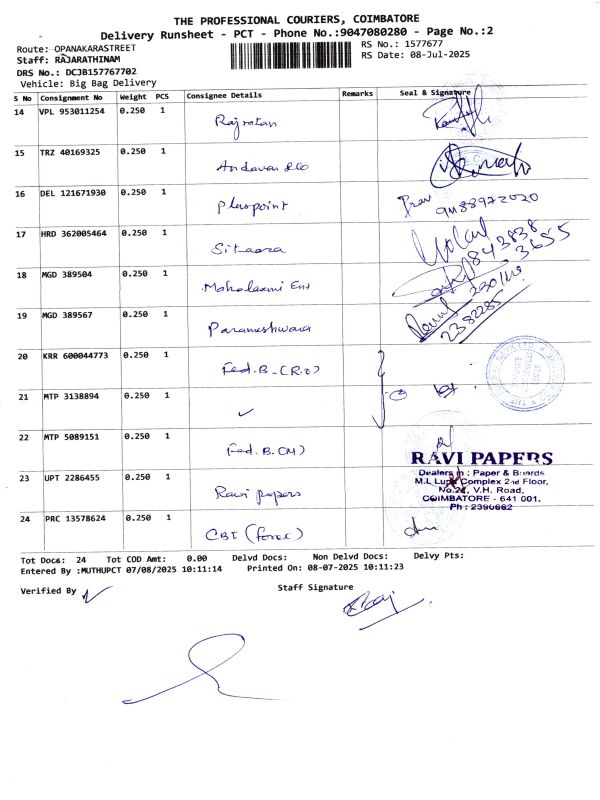 THE PROFESSIONAL COURIERS, COIMBATORE
Delivery Runsheet - PCT - Phone No.:9047080280 - Page No.:2
Route: OPANAKARASTREET
RS No.: 1577677
Staff: RAJARATHINAM
RS Date: 08-Jul-2025
DRS No.: DCJB157767702
Vehicle: Big Bag Delivery
S No Consignment No Weight PCS Consignee Details Remarks Seal & Signature
14 VPL 953011254 0.250 1 Rajratan
15 TRZ 40169325 0.250 1 Andavar &co
16 DEL 121671930 0.250 1 pluspoint
17 HRD 362005464 0.250 1 Sitaara
18 MGD 389504 0.250 1 Mahalaxmi Ent
19 MGD 389567 0.250 1 Parameshwara
2382285
20 KRR 600044773 0.250 1 Fed.B-(R.S)
21 MTP 3138894 0.250 1
22 MTP 5089151 0.250 1 Fed.B.CM)
23 UPT 2286455 0.250 1 Ravi papers
RAVI PAPERS
Dealers in : Paper & Boards
M.L Complex 2nd Floor,
V.H. Road,
COIMBATORE - 641 001.
Ph : 2390662
24 PRC 13578624 0.250 1 CBI (forex)
Tot Docs: 24 Tot COD Amt: 0.00 Delvd Docs: Non Delvd Docs: Delvy Pts:
Entered By :MUTHUPCT 07/08/2025 10:11:14 Printed On: 08-07-2025 10:11:23
Verified By
Staff Signature